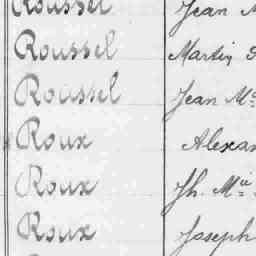 Roussel Jean
Roussel Martin
Roussel Jean Mᵉ
Roux Alexan
Roux Jh. Mⁱᵉ
Roux Joseph